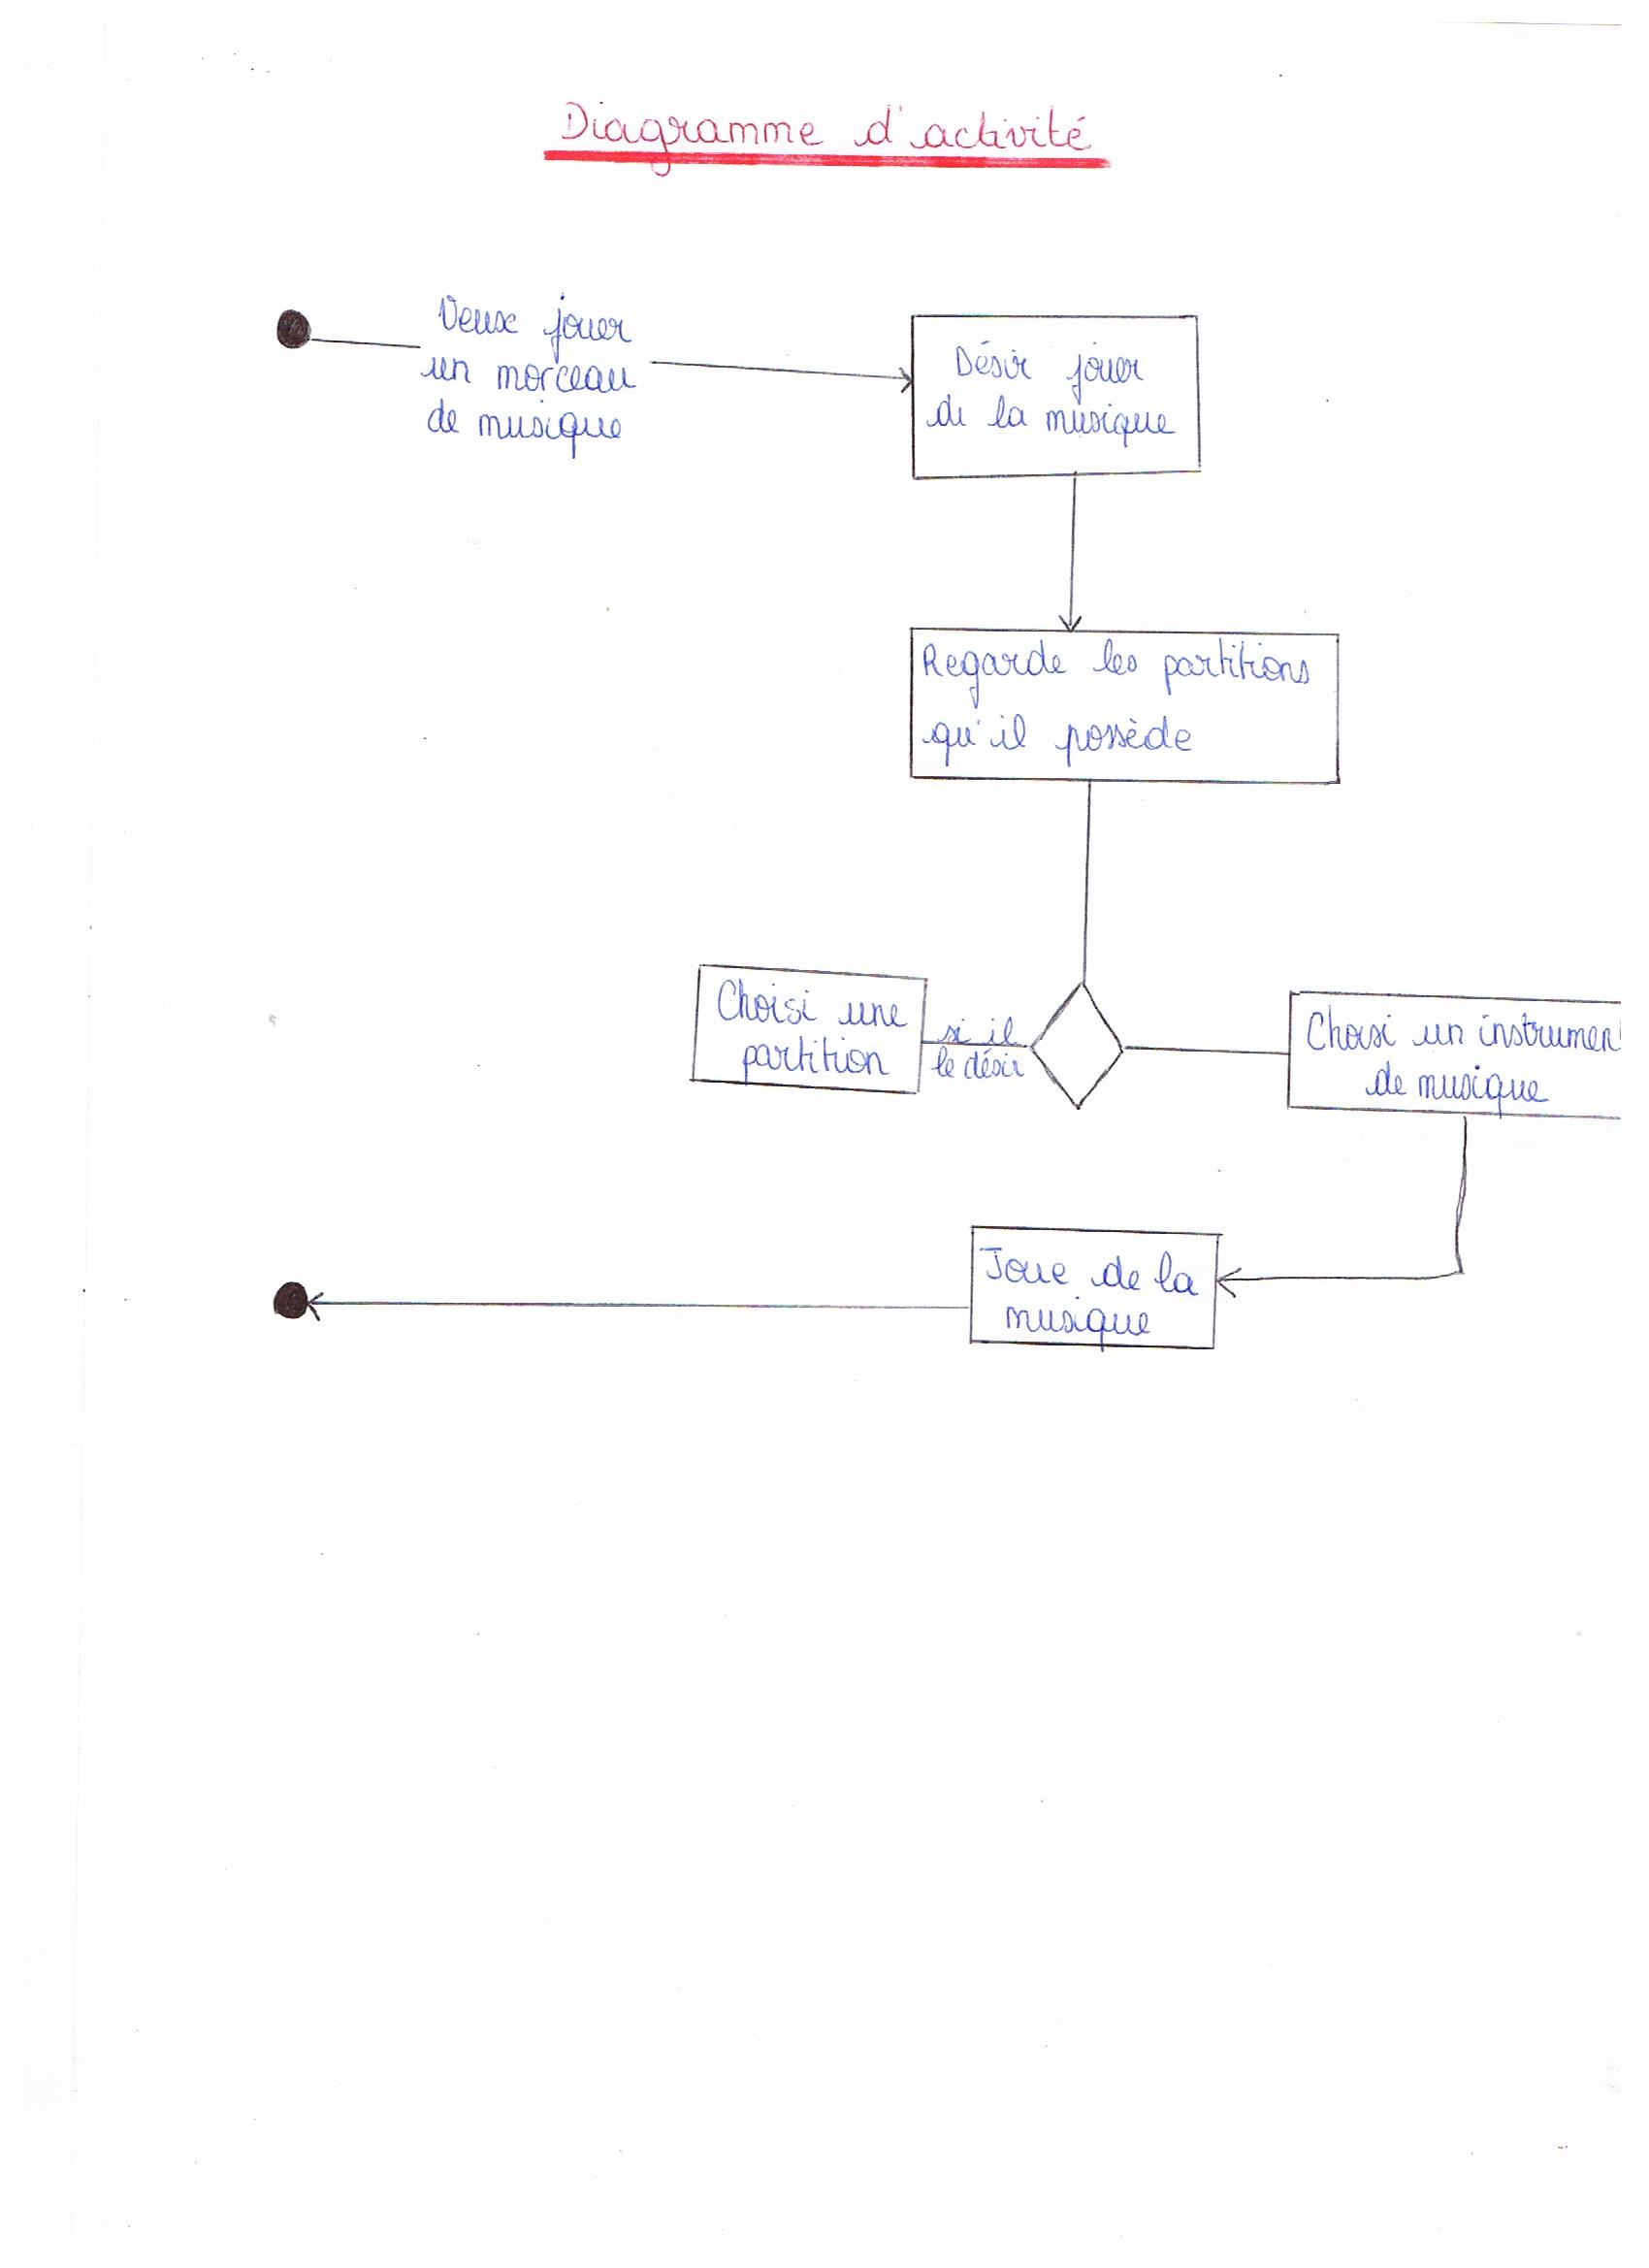 Diagramme d'activité
Veux jouer
un morceau
de musique
Désir jouer
de la musique
Regarde les partitions
qu'il possède
Choisi une
partition
si il
le désir
Choisi un instrumen
de musique
Joue de la
musique